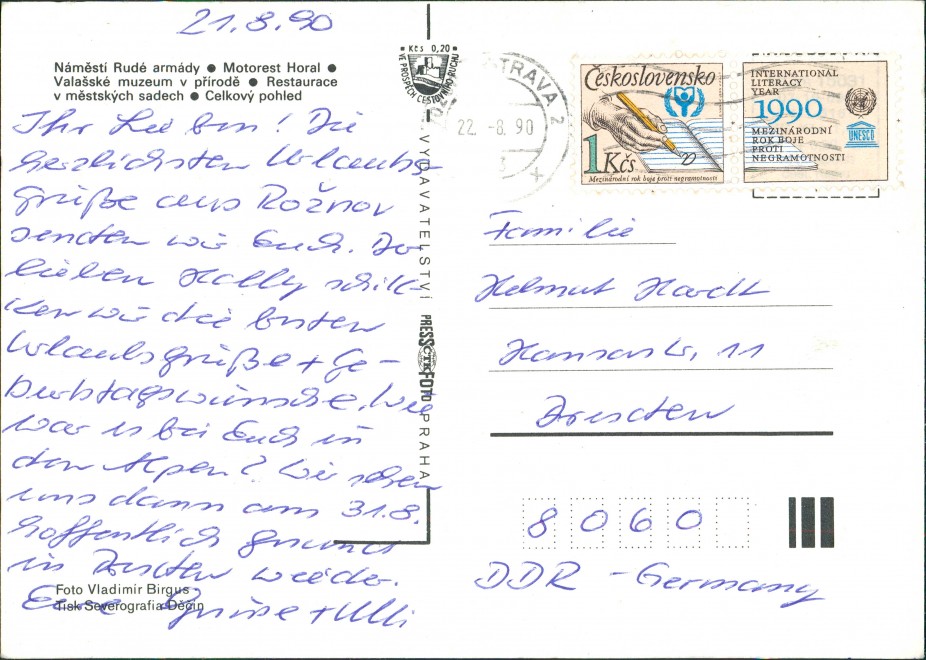 21.8.90
Náměstí Rudé armády ● Motorest Horal ●
Valašské muzeum v přírodě ● Restaurace
v městských sadech ● Celkový pohled
Ihr Lieben! Die
herzlichsten Urlaubs-
grüße aus Rožnov
senden wir Euch. Der
lieben schik-
ken wir die besten
Urlaubsgrüße + Ge-
burtstagswünsche. Wie
war es bei Euch in
den Alpen? Wir sehen
uns dann am 31.8.
hoffentlich gesund
in Dresden wieder.
Eure + Ulli
Foto Vladimír Birgus
Tisk Severografia Děčín
Kčs 0,20
VE PROSPĚCH CESTOVNÍHO RUCHU
VYDAVATELSTVÍ PRESSFOTO PRAHA
ČTK
OSTRAVA 2
22.-8.90
Československo
1 Kčs
Mezinárodní rok boje proti negramotnosti
INTERNATIONAL
LITERACY
YEAR
1990
MEZINÁRODNÍ
ROK BOJE
PROTI
NEGRAMOTNOSTI
UNESCO
Familie
Helmut Hardt
Hansastr. 11
Dresden
8060
DDR - Germany